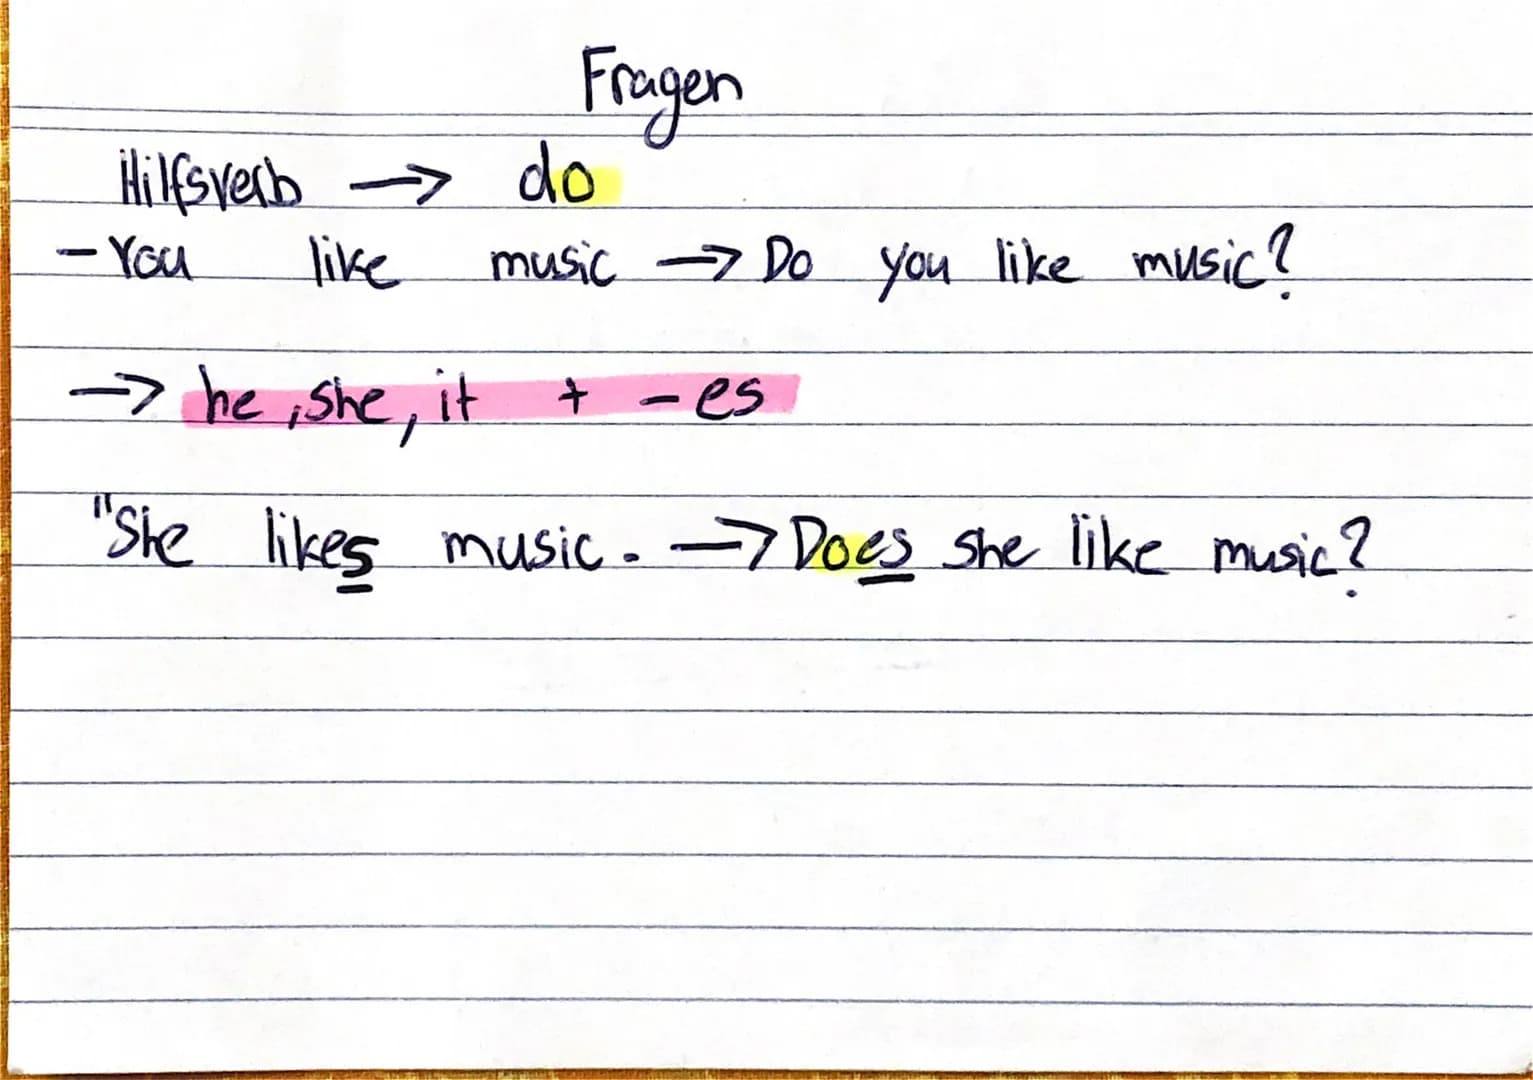 Fragen
Hilfsverb → do
- You like music → Do you like music?
→ he, she, it + - es
"She likes music. → Does she like music?